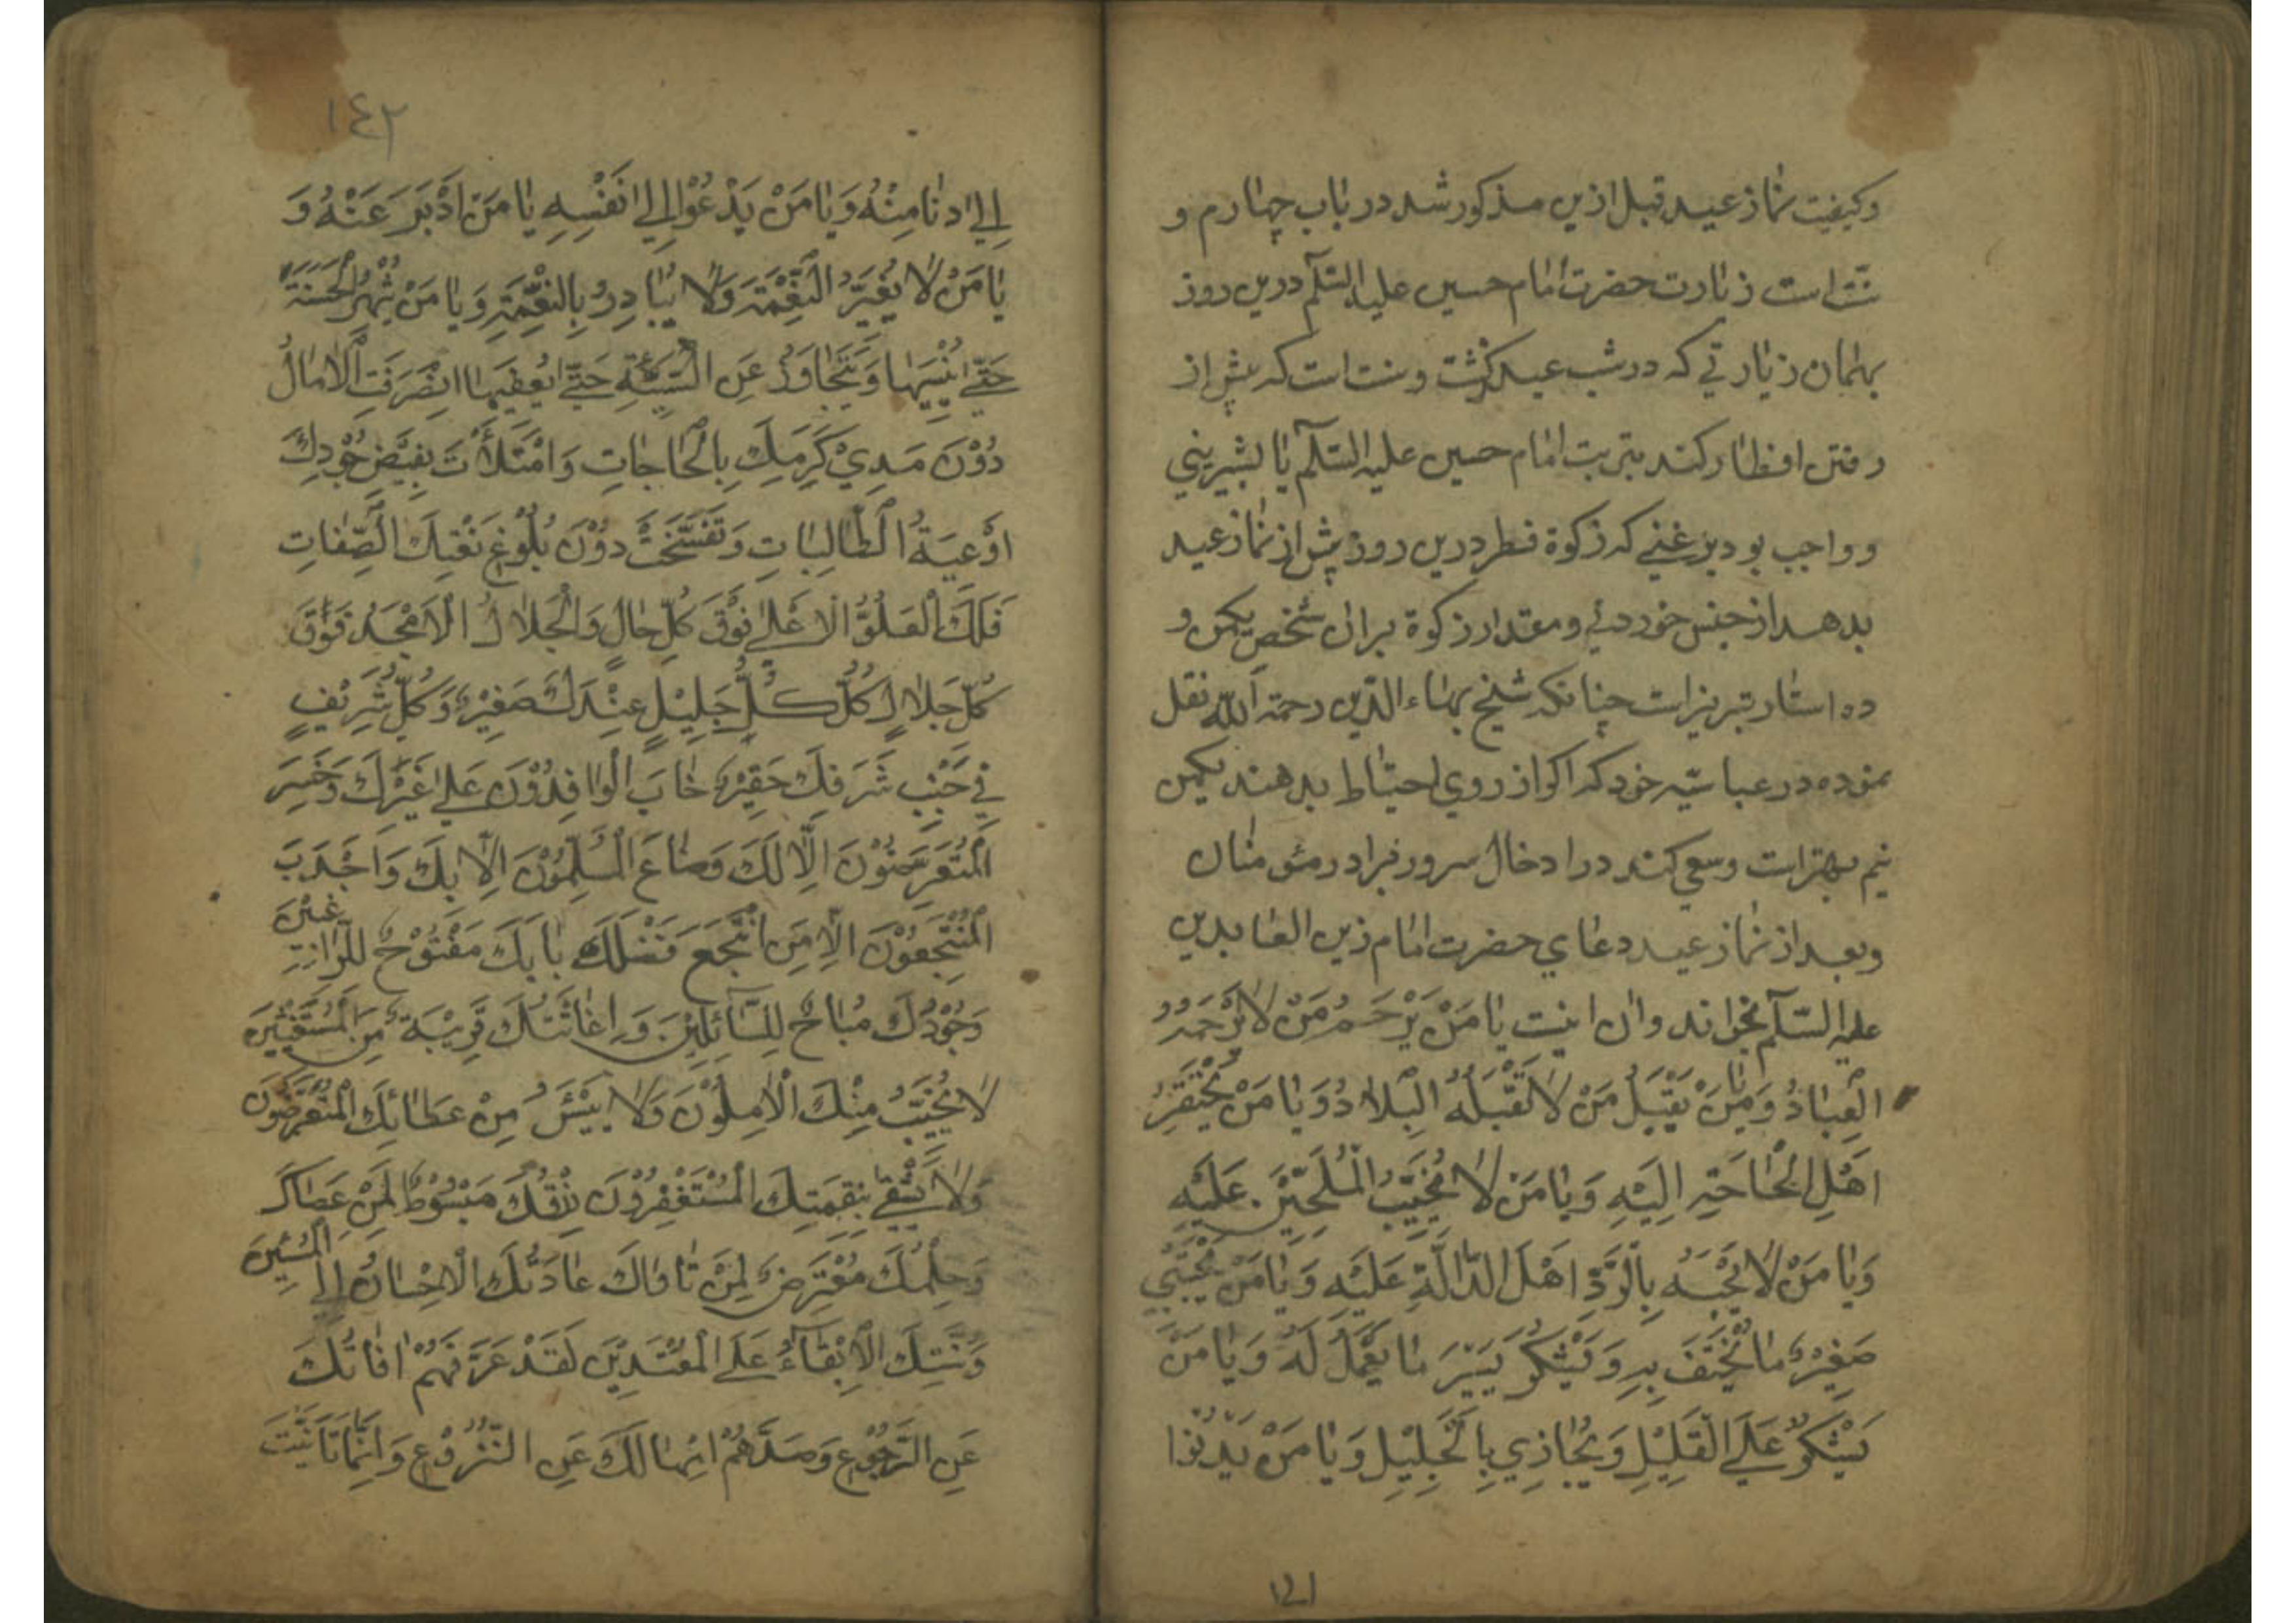 وکیفیت نماز عید قبل ازین مذکور شد در باب چهارم و
سنت است زیارت حضرت امام حسین علیه السّلام درین روز
بهمان زیارتی که در شب عید گذشت و سنت است که پیش از
رفتن افطار کند بتربت امام حسین علیه السّلام یا بشیرینی
و واجب بود بر غنی که زکوة فطر درین روز پیش از نماز عید
بدهد از جنس خوردنی و مقدار زکوة بران شخص یکمن و
ده استار تبریز است چنانکه شیخ بهاء الدّین رحمة اللّه نقل
نموده در عباسیّه خود که اکر از روی احتیاط بدهند یکمن
نیم بهتر است و سعی کنند در ادخال سرور فرادر مؤمنان
وبعد از نماز عید دعای حضرت امام زین العابدین
علیه السّلام بخواند و ان اینست یَا مَنْ یَرْحَمُ مَنْ لَا یَرْحَمُهُ
الْعِبَادُ وَ یَا مَنْ یَقْبَلُ مَنْ لَا تَقْبَلُهُ الْبِلَادُ وَ یَا مَنْ یَحْتَقِرُ
اَهْلِ الْحَاجَةِ اِلَیْهِ وَ یَا مَنْ لَا یُخَیِّبُ الْمُلِحِّیْنَ عَلَیْهِ
وَ یَا مَنْ لَا یَجْبَهُ بِالرَّدِّ اَهْلَ الدَّالَّةِ عَلَیْهِ وَ یَا مَنْ یَجْتَبِی
صَغِیْرُ مَا یُتْحَفُ بِهِ وَ یَشْکُرُ یَسِیْرَ مَا یُعْمَلُ لَهُ وَ یَا مَنْ
یَشْکُرُ عَلَی الْقَلِیْلِ وَ یُجَازِی بِالْجَلِیْلِ وَ یَا مَنْ یَدْنُوا
١٤٢
اِلَی ادنَا مِنْهُ وَ یَا مَنْ یَدْعُوْا اِلَی نَفْسِهِ یَا مَنْ اَدْبَرَ عَنْهُ وَ
یَا مَنْ لَا یُغَیِّرُ النِّعْمَةَ وَلَا یُبَادِرُ بِالنِّقْمَةِ وَ یَا مَنْ یُثْمِرُ الْحَسَنَةَ
حَتّی یُنْمِیَهَا وَ یَتَجَاوَزُ عَنِ السَّیِّئَةِ حَتّی یُعْفِیَهَا انْصَرَفَتِ الْاٰمَالُ
دُوْنَ مَدِیْ کَرَمِکَ بِالْحَاجَاتِ وَ امْتَلَأَتْ بِفَیْضِ جُوْدِکَ
اَوْعِیَةُ الطَّالِبَاتِ وَ تَفَسَّخَتْ دُوْنَ بُلُوْغِ نَعْتِکَ الصِّفَاتِ
فَلَکَ الْعُلُوُّ الْاَعْلی فَوْقَ کُلِّ حَالٍ وَ الْجَلَالُ الْاَمْجَدُ فَوْقَ
کُلِّ جَلَالٍ کُلُّ جَلِیْلٍ عِنْدَکَ صَغِیْرٌ وَ کُلُّ شَرِیْفٍ
فِی جَنْبِ شَرَفِکَ حَقِیْرٌ خَابَ الْوَافِدُوْنَ عَلی غَیْرِکَ وَ خَسِرَ
الْمُتَعَرِّضُوْنَ اِلَّا لَکَ وَ ضَاعَ الْمُسْلِمُوْنَ اِلَّا بِکَ وَ اَجْدَبَ
الْمُنْتَجِعُوْنَ اِلَّا مَنِ انْتَجَعَ فَضْلَکَ بَابَکَ مَفْتُوْحٌ لِلرَّاغِبِیْنَ
وَ جُوْدُکَ مُبَاحٌ لِلسَّائِلِیْنَ وَ اِغَاثَتُکَ قَرِیْبَةٌ مِنَ الْمُسْتَغِیْثِیْنَ
لَا یُخَیَّبُ مِنْکَ الْاٰمِلُوْنَ وَلَا یَیْئَسُ مِنْ عَطَائِکَ الْمُتَعَرِّضُوْنَ
وَلَا یَشْقی بِنِقْمَتِکَ الْمُسْتَغْفِرُوْنَ رِزْقُکَ مَبْسُوْطٌ لِمَنْ عَصَاکَ
وَ حِلْمُکَ مُعْتَرِضٌ لِمَنْ نَاوَاکَ عَادَتُکَ الْاِحْسَانُ اِلَی الْمُسِیْئِیْنَ
وَ سُنَّتِکَ الْاِبْقَاءُ عَلَی الْمُعْتَدِیْنَ لَقَدْ غَرَّتْهُمْ اَنَاتُکَ
عَنِ الرُّجُوْعِ وَ صَدَّهُمْ اِمْهَالُکَ عَنِ النُّزُوْعِ وَ اِنَّمَا تَاَنَّیْتَ